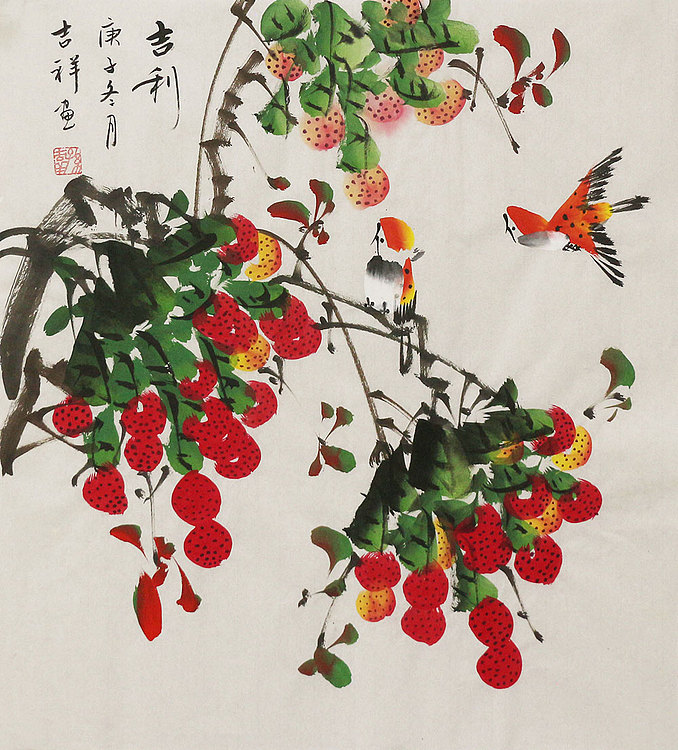 吉利
庚子冬月
吉祥画